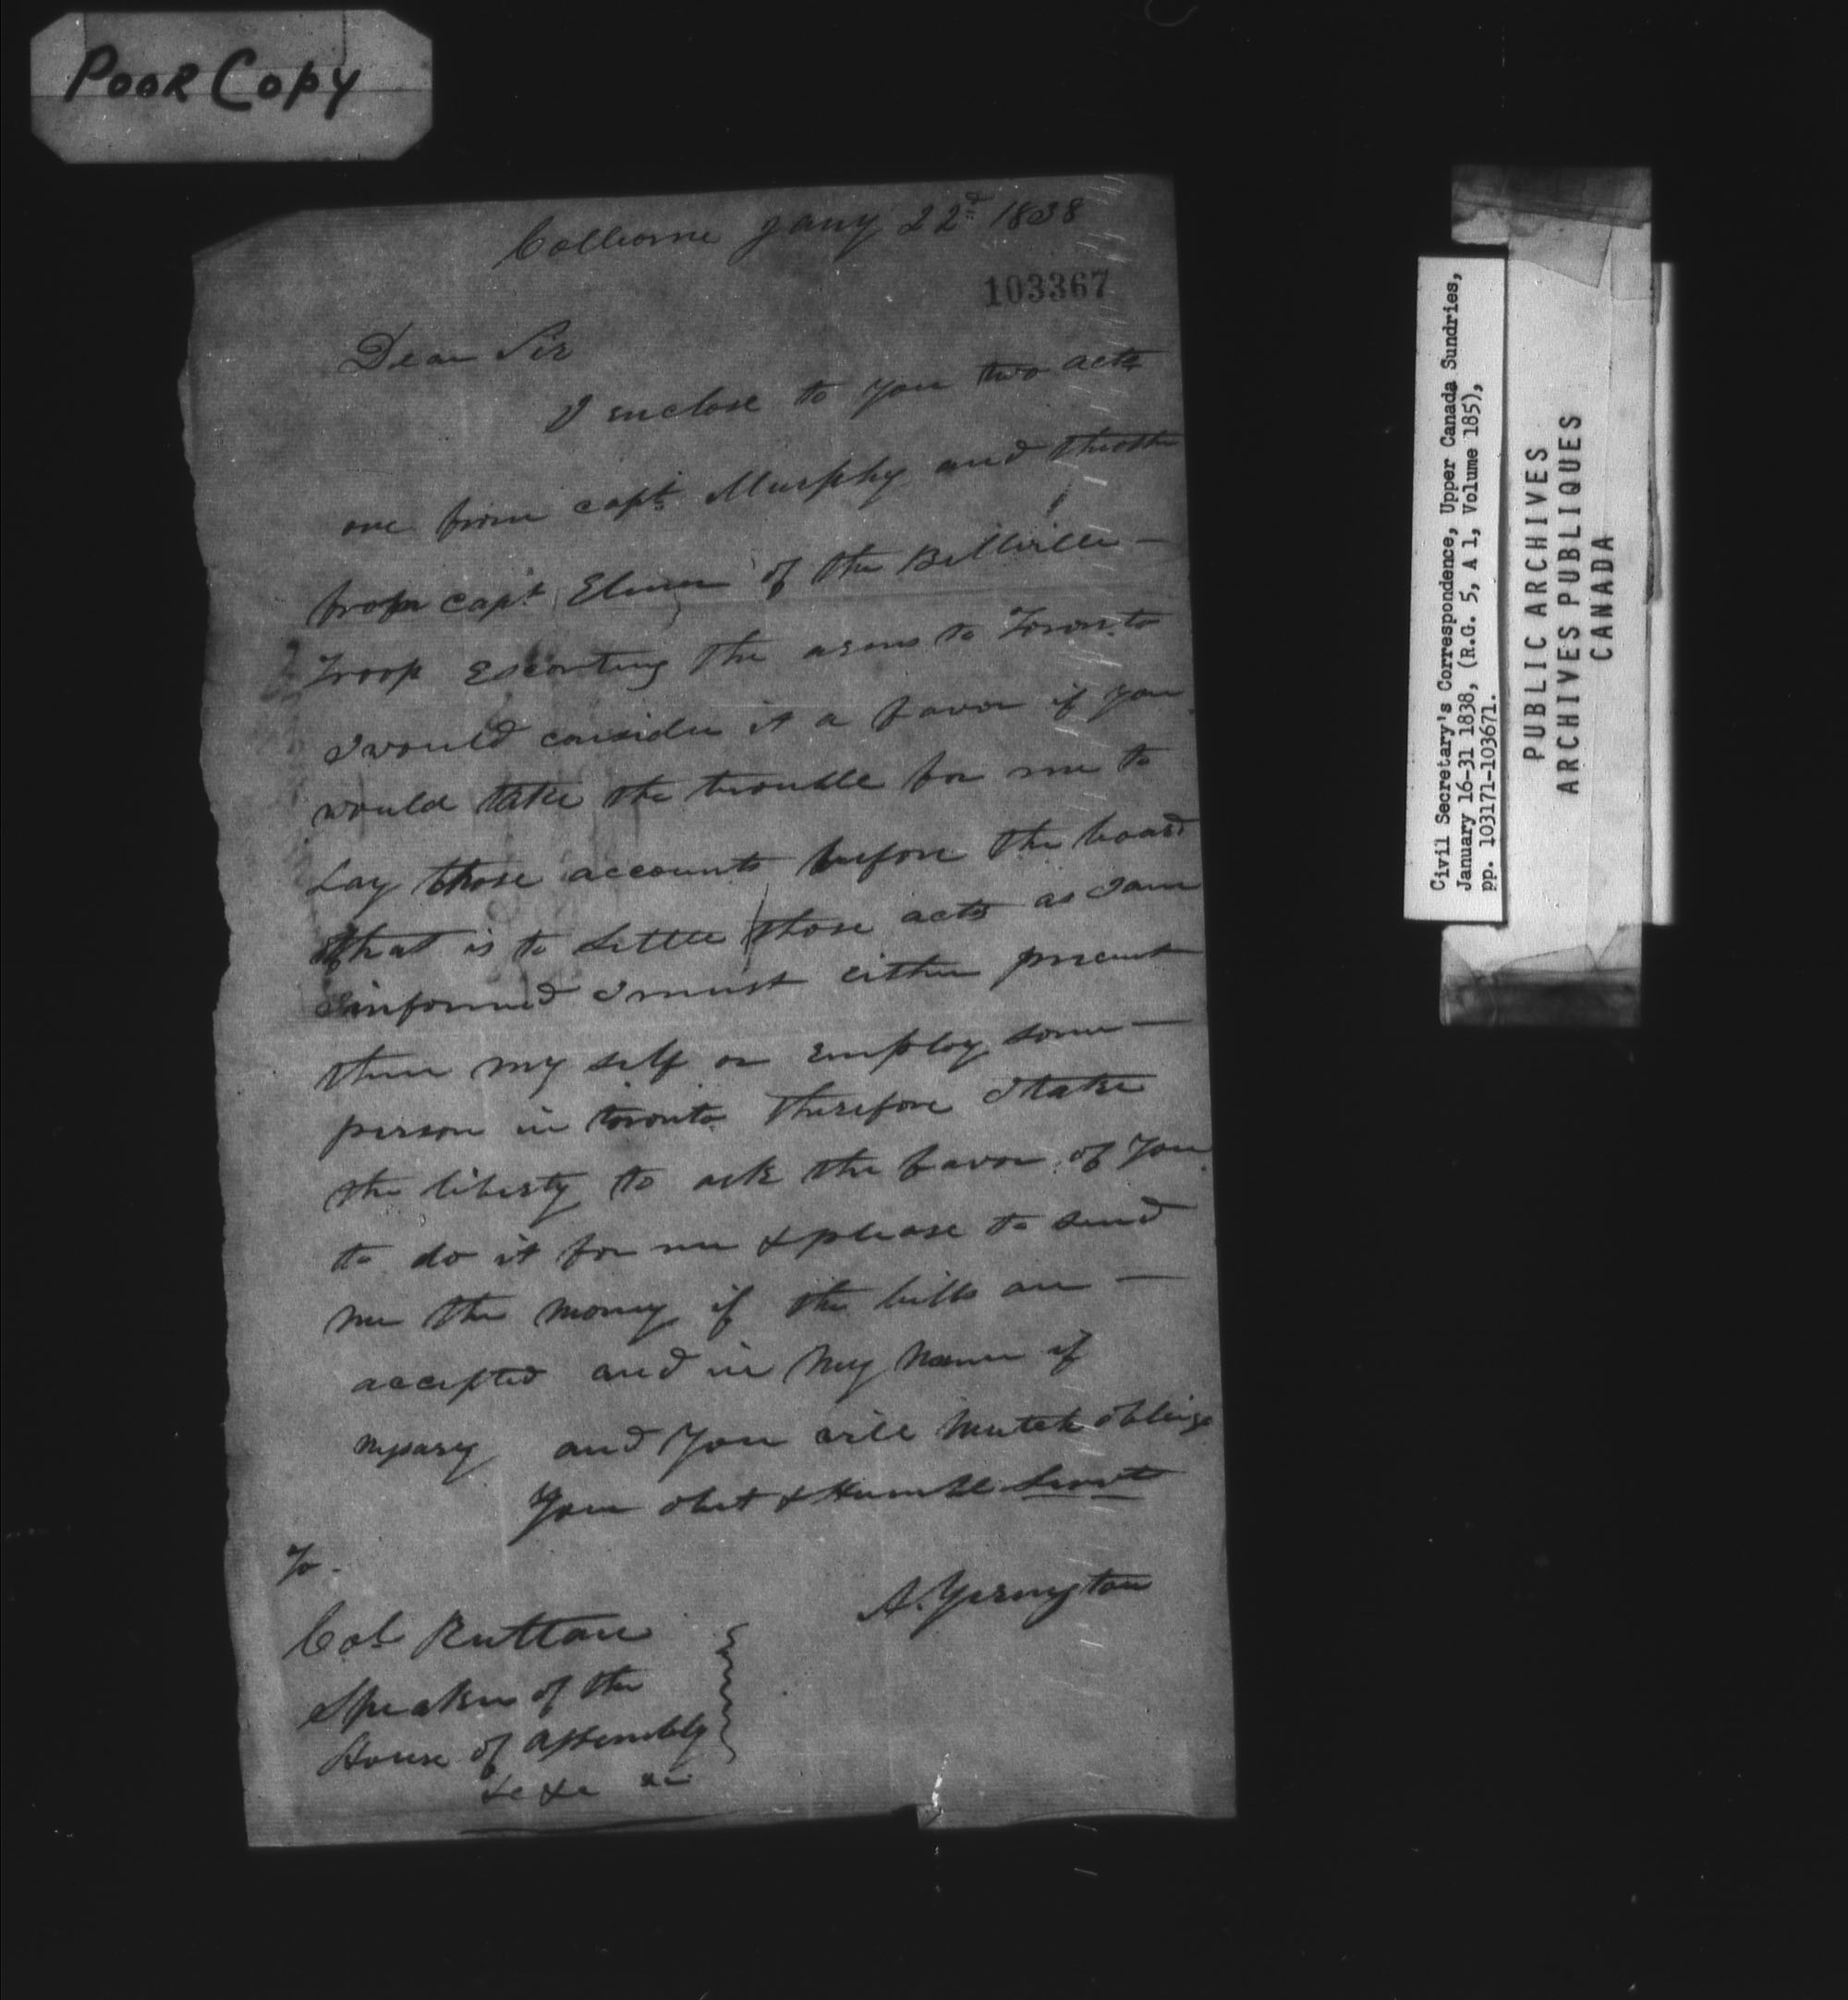 Poor Copy
Colborne Jany 22d 1838
103367
Dear Sir
I enclose to you two acts
one from capt Murphy and the other
from capt of the Bellville —
Troop Escorting the arms to Toronto
I would consider it a favor if you
would take the trouble for me to
Lay those accounts before the board
that is to Settle those acts as I am
informed I must either present
them my self or Employ some —
person in toronto Therefore I take
the liberty to ask the favor of You
to do it for me & please to send
me the money if the bills are —
accepted and in my name if
and You will mutch oblige
Your obet & Humble Servt
A. Yerington
To
Col Ruttan
Speaker of the
House of Assembly
&c &c &c
Civil Secretary's Correspondence, Upper Canada Sundries,
January 16-31 1838, (R.G. 5, A 1, Volume 185),
pp. 103171-103671.
PUBLIC ARCHIVES
ARCHIVES PUBLIQUES
CANADA